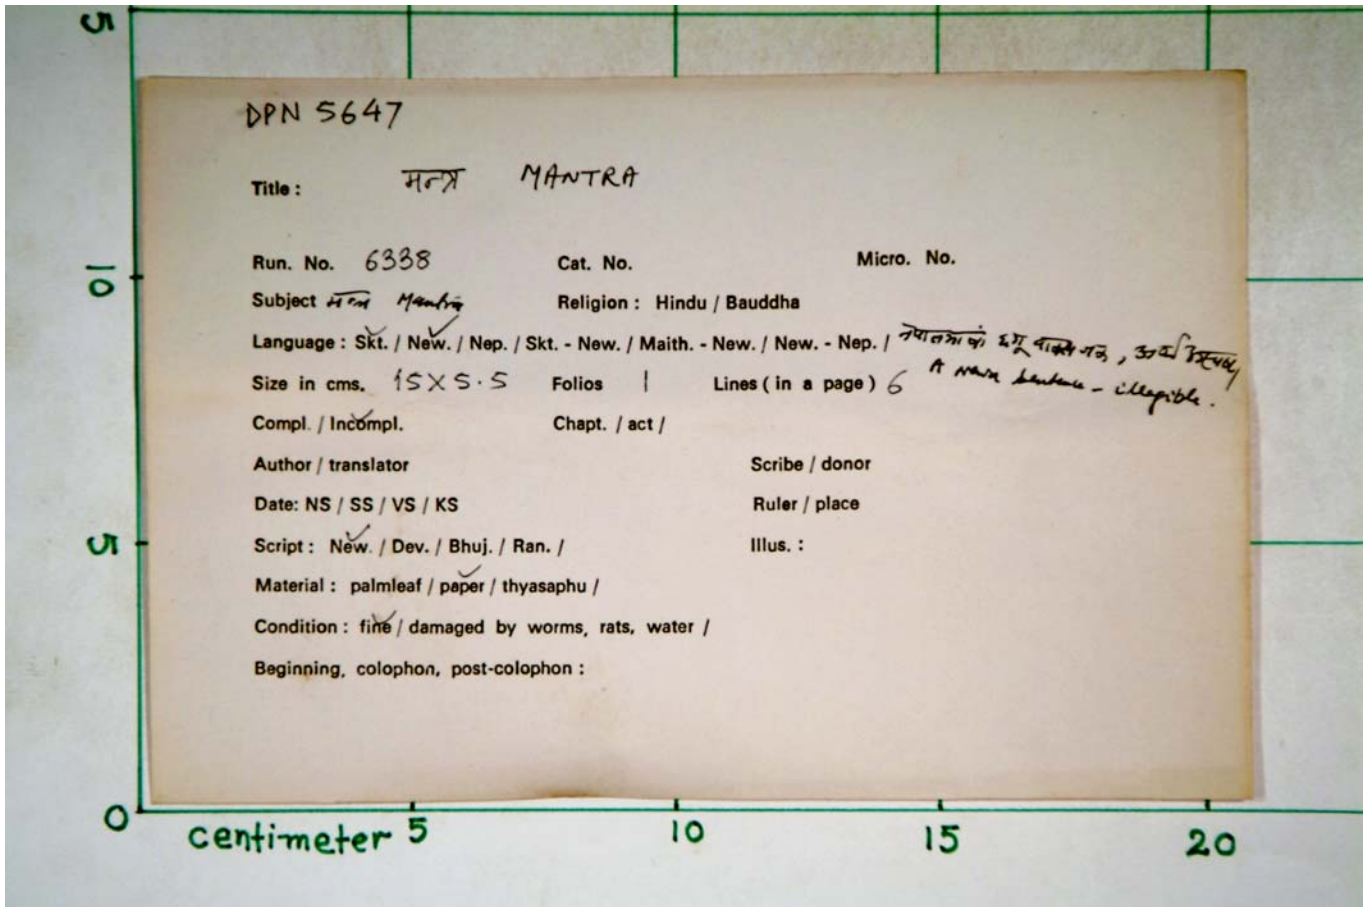 5
DPN 5647
Title : मन्त्र MANTRA
Run. No. 6338 Cat. No. Micro. No.
10
Subject मन्त्र Mantra Religion : Hindu / Bauddha
Language : Skt. / New. / Nep. / Skt. - New. / Maith. - New. / New. - Nep. /
A newa sentence - illegible.
Size in cms. 15 X 5.5 Folios 1 Lines ( in a page ) 6
Compl. / Incompl. Chapt. / act /
Author / translator Scribe / donor
Date: NS / SS / VS / KS Ruler / place
5
Script : New. / Dev. / Bhuj. / Ran. / Illus. :
Material : palmleaf / paper / thyasaphu /
Condition : fine / damaged by worms, rats, water /
Beginning, colophon, post-colophon :
0
centimeter 5 10 15 20